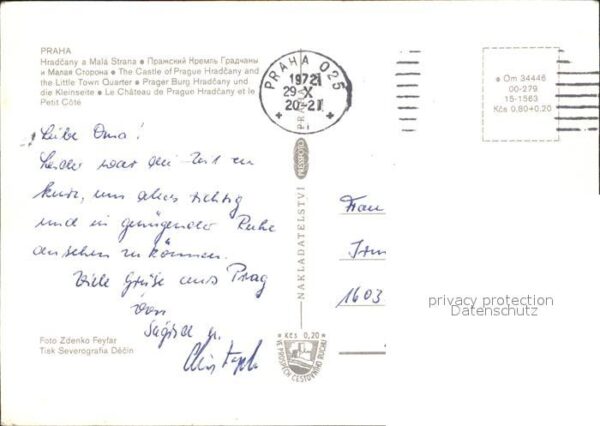 PRAHA
Hradčany a Malá Strana • Пражский Кремль Градчаны
и Малая Сторона • The Castle of Prague Hradčany and
the Little Town Quarter • Prager Burg Hradčany und
die Kleinseite • Le Château de Prague Hradčany et le
Petit Côté
PRAHA 025
1972
29-X
20-21
• Om 34446
00-279
15-1563
Kčs 0,80+0,20
Liebe Oma!
Leider war die Zeit zu
kurz, um alles richtig
und in genügender Ruhe
ansehen zu können.
Viele Grüße aus Prag
von
u.
Christoph
PRESSFOTO
NAKLADATELSTVÍ
PRAHA
Frau
Irm
1603
privacy protection
Datenschutz
Foto Zdenko Feyfar
Tisk Severografia Děčín
Kčs 0,20
VE PROSPĚCH CESTOVNÍHO RUCHU